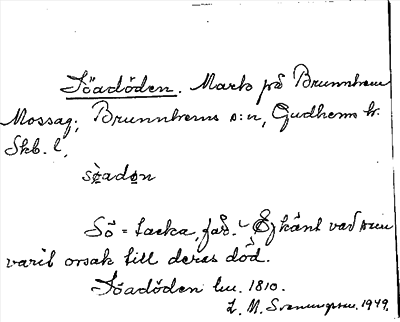 Söadöden. Mark på Brunnhem
Mossag; Brunnhems s:n, Gudhems hr.
Skb. l.
sø̀adøn
Sö = tacka, får. Ej känt vad som
varit orsak till deras död.
Söadöden lm. 1810.
L. M. Svenungsson. 1949.